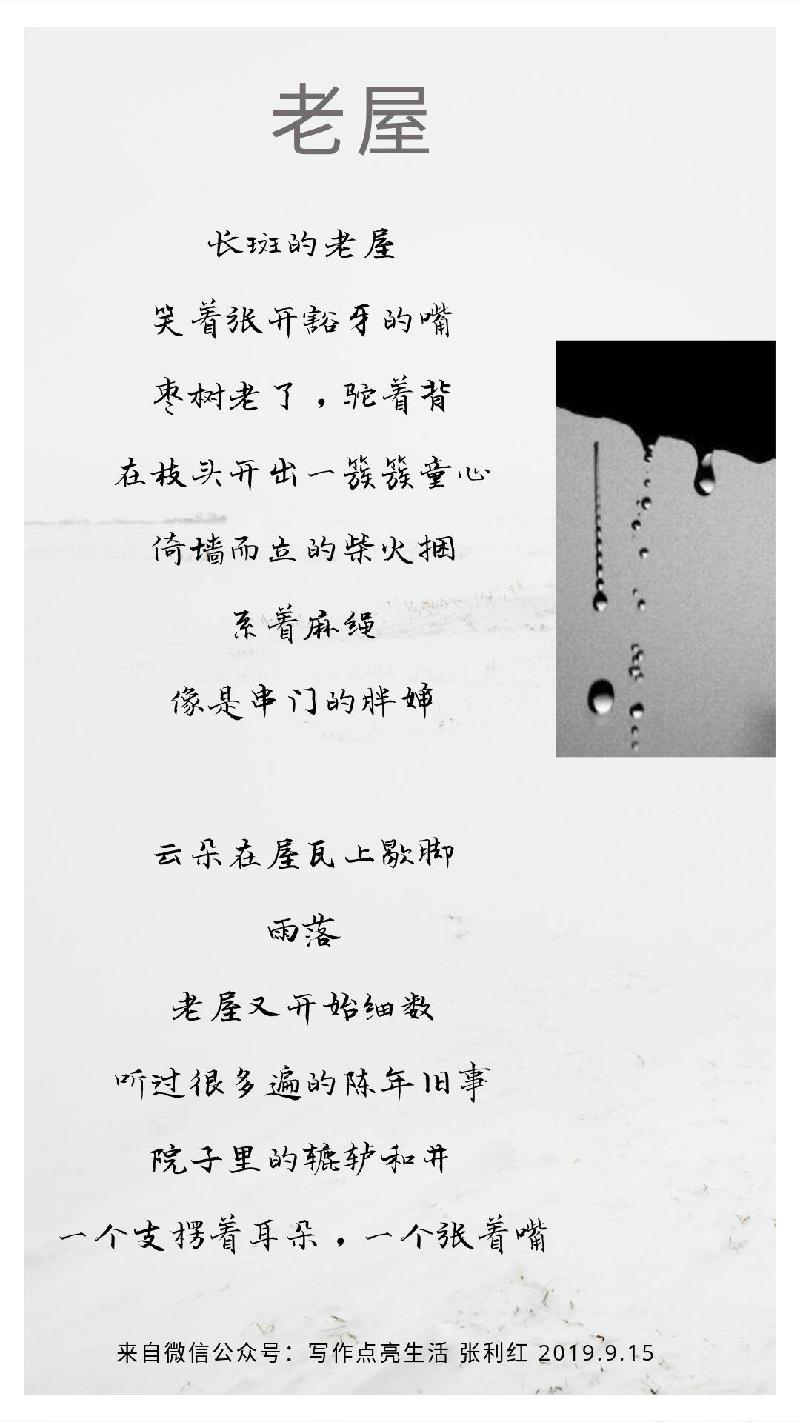 老屋
长斑的老屋
笑着张开豁牙的嘴
枣树老了，驼着背
在枝头开出一簇簇童心
倚墙而立的柴火捆
系着麻绳
像是串门的胖婶
云朵在屋瓦上歇脚
雨落
老屋又开始细数
听过很多遍的陈年旧事
院子里的辘轳和井
一个支楞着耳朵，一个张着嘴
来自微信公众号：写作点亮生活 张利红 2019.9.15